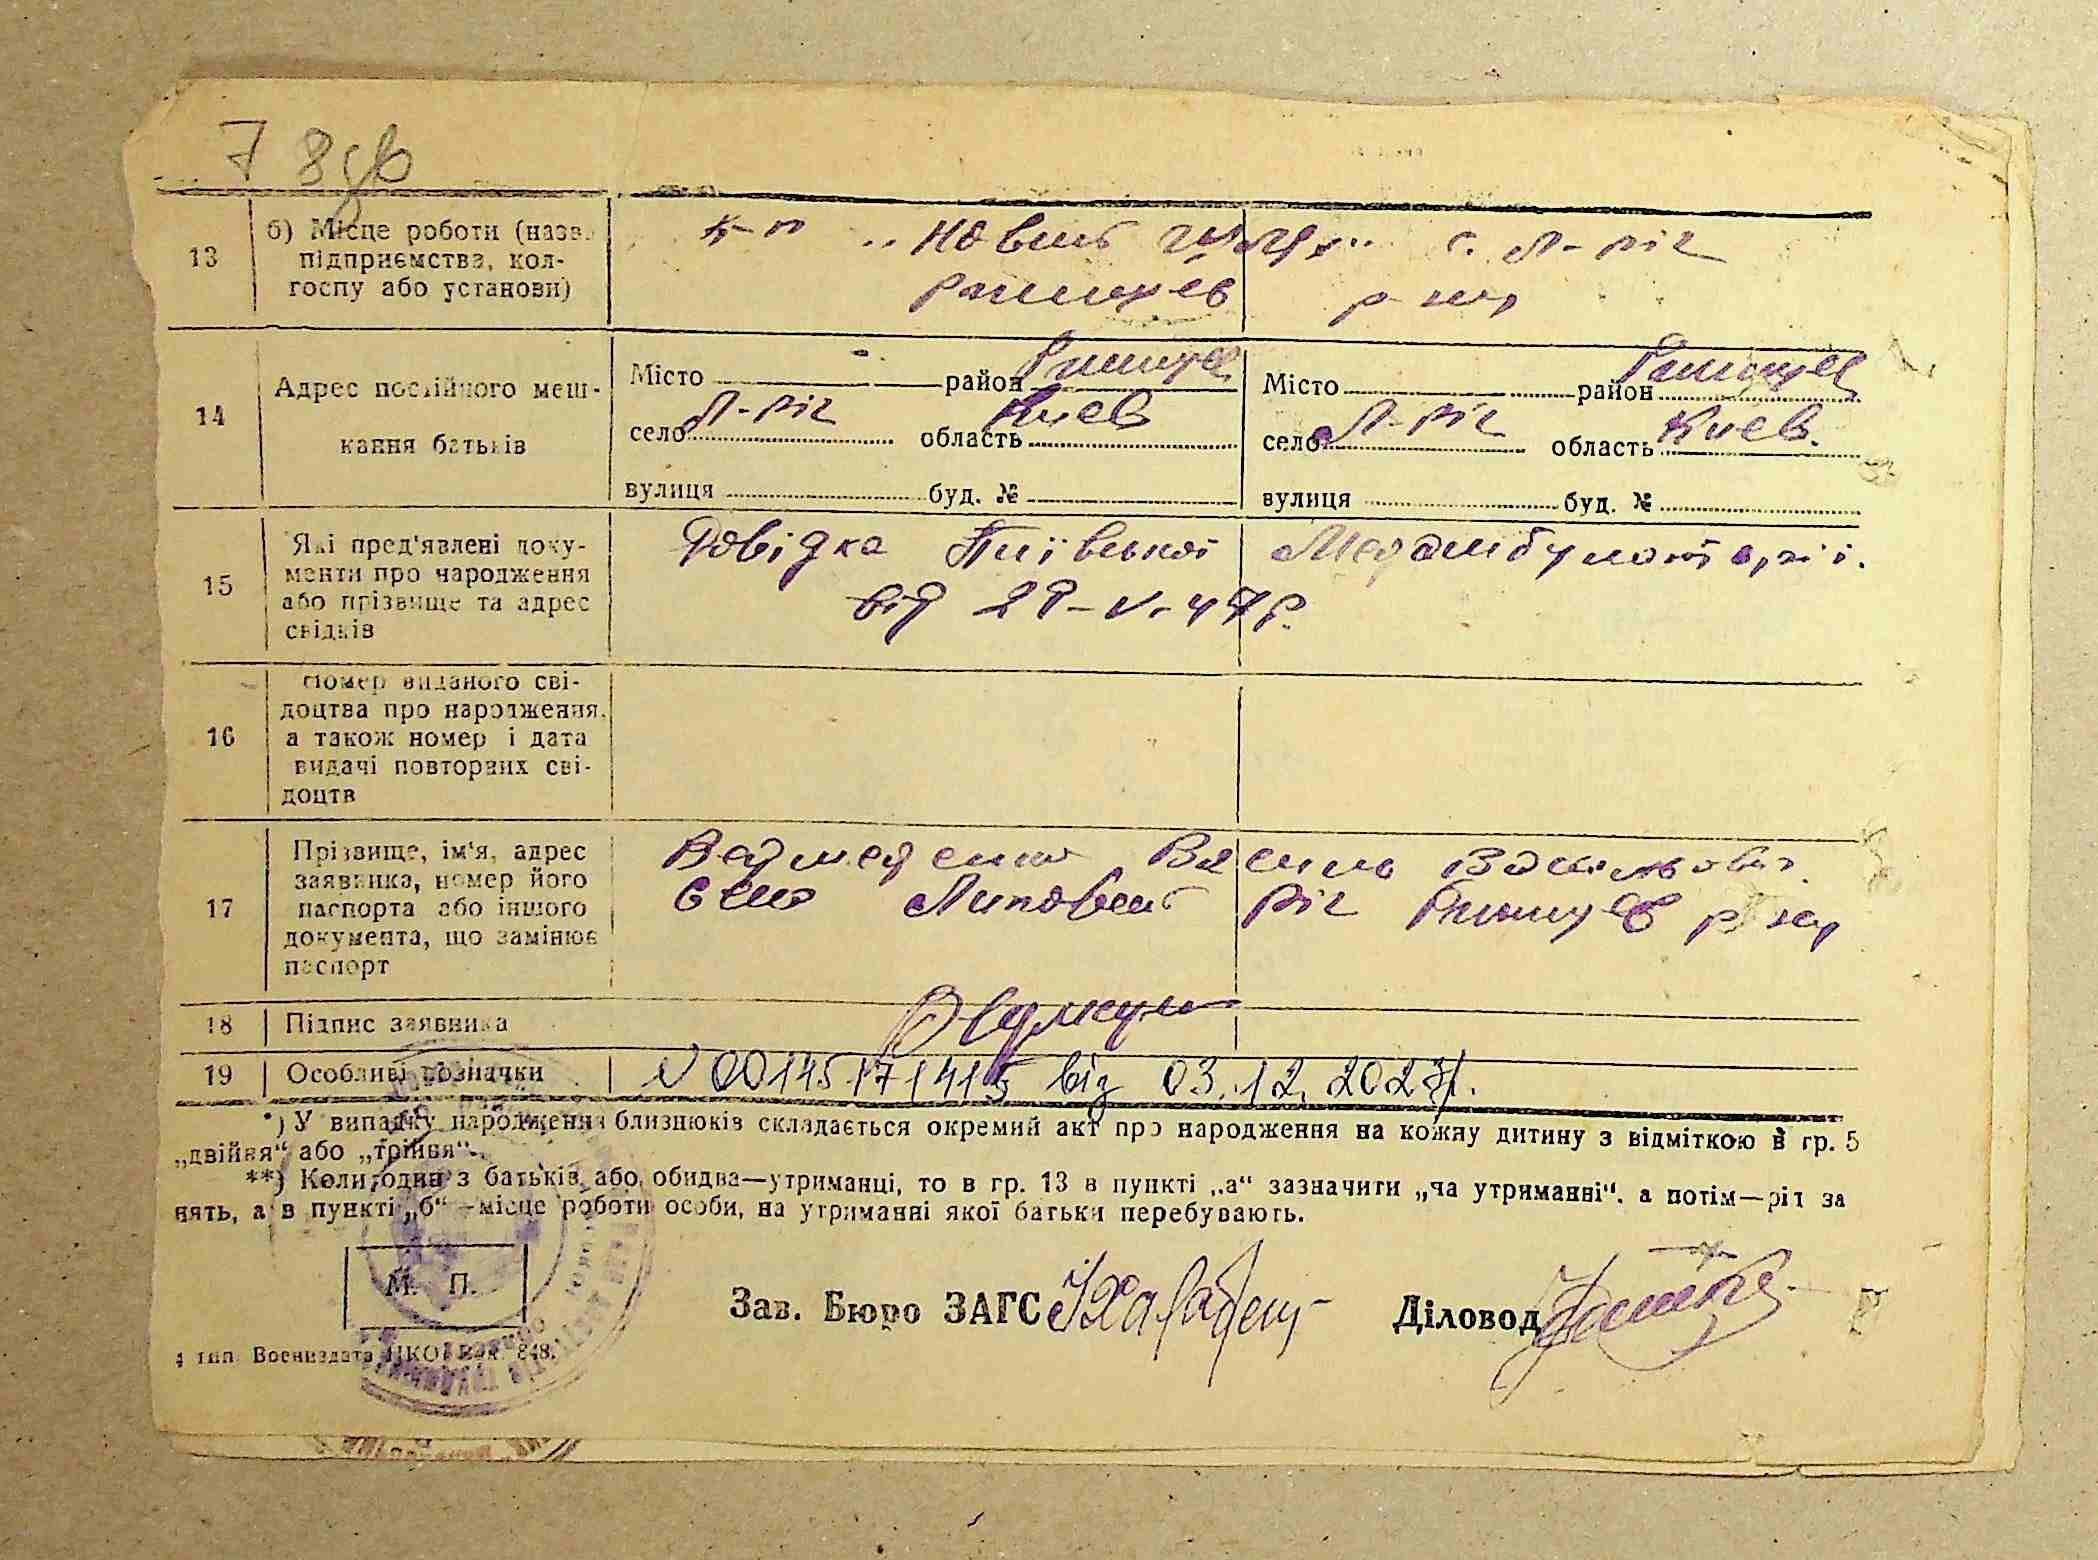 7 8зв
13 б) Місце роботи (назв. підприємства, колгоспу або установи)
к-п „Новий шлях" с. Л-ріг
Ржищев р-ну
14 Адрес постійного мешкання батьків
Місто район Ржищев
село Л-ріг область Киев
вулиця буд. №
Місто район Ржищев
село Л-ріг область Киев.
вулиця буд. №
15 Які пред'явлені документи про народження або прізвище та адрес свідків
Довідка Пиївської Медамбулаторії.
від 29-V-47р.
16 Номер виданого свідоцтва про народження, а також номер і дата видачі повторних свідоцтв
17 Прізвище, ім'я, адрес заявника, номер його паспорта або іншого документа, що замінює паспорт
Ведмеденко Василь Васильович.
село Липовий ріг Ржищев р-ну
18 Підпис заявника
19 Особливі позначки
N 00145171415 від 03.12.2023р.
*) У випадку народження близнюків складається окремий акт про народження на кожну дитину з відміткою в гр. 5
„двійня" або „трійня".
**) Коли один з батьків або обидва—утриманці, то в гр. 13 в пункті „а" зазначити „на утриманні", а потім—рід за
нять, а в пункті „б"—місце роботи особи, на утриманні якої батьки перебувають.
М. П.
Зав. Бюро ЗАГС Діловод
4 тип. Воениздата НКО Зак. 848.